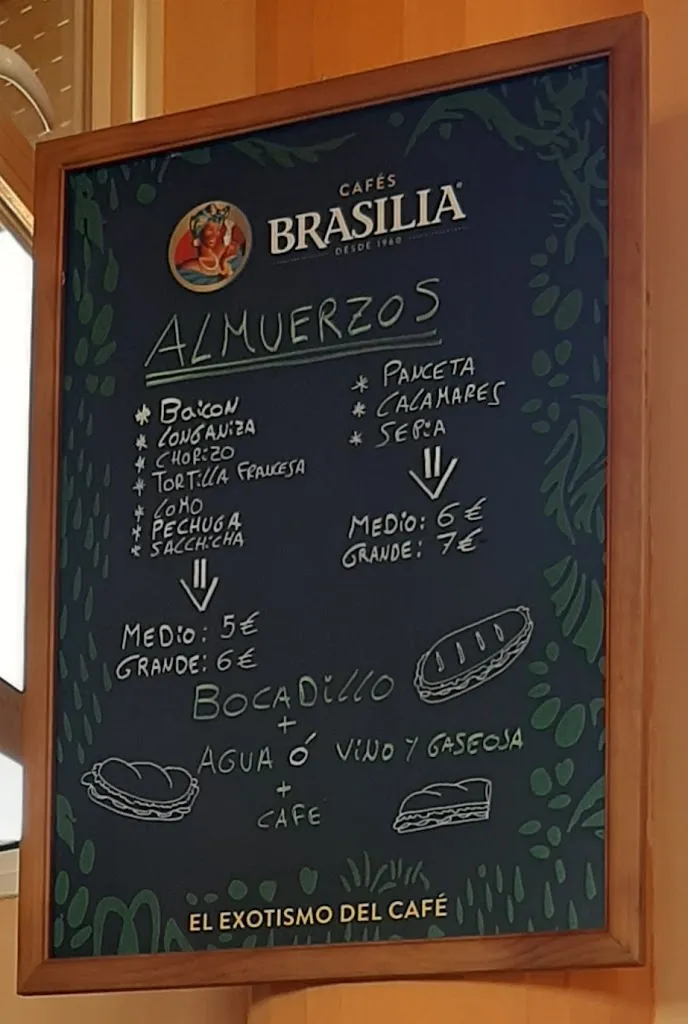 CAFÉS
BRASILIA
DESDE 1960
ALMUERZOS
* BAICON
* LONGANIZA
* CHORIZO
* TORTILLA FRANCESA
* LOMO
* PECHUGA
* SALCHICHA
MEDIO: 5€
GRANDE: 6€
* PANCETA
* CALAMARES
* SEPIA
MEDIO: 6€
GRANDE: 7€
BOCADILLO
+
AGUA Ó VINO Y GASEOSA
+
CAFE
EL EXOTISMO DEL CAFÉ